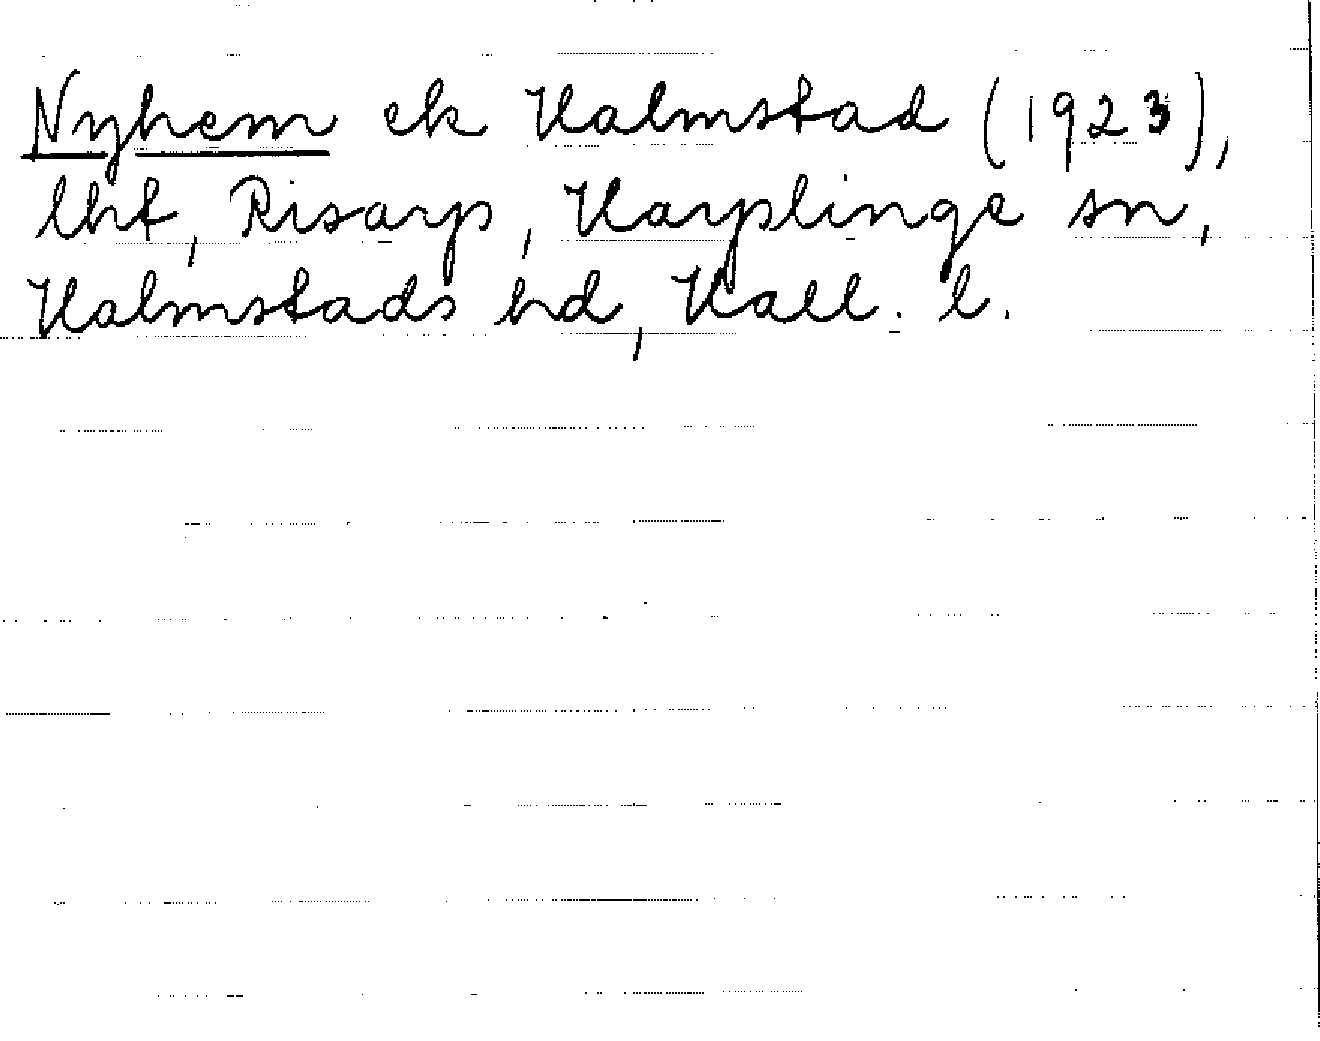 Nyhem ek Halmstad (1923),
lht, Risarp, Harplinge sn,
Halmstads hd, Hall. l.